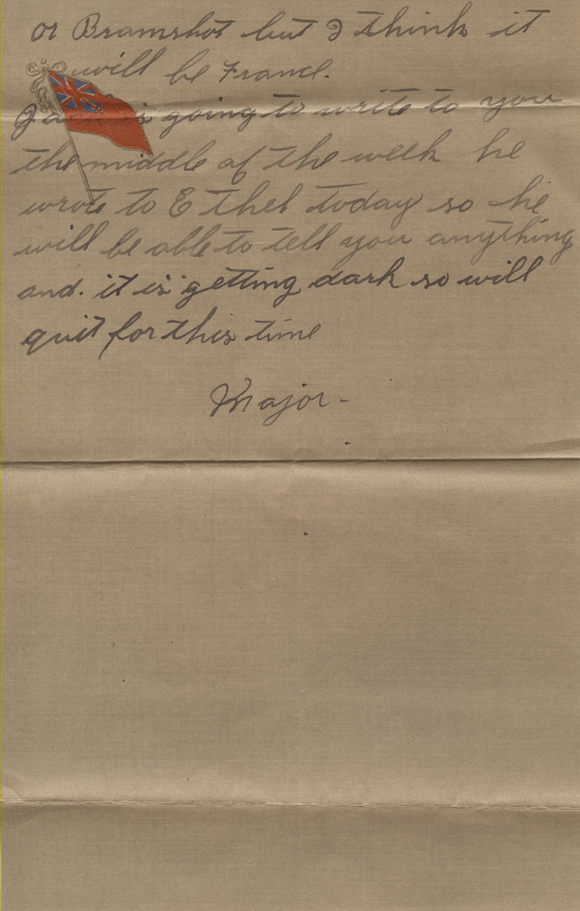 or Bramshot but I think it
will be Francl.
is going to write to you
the middle of the week he
wrote to Ethel today so he
will be able to tell you anything
and. it is getting dark so will
quit for this time
Major -